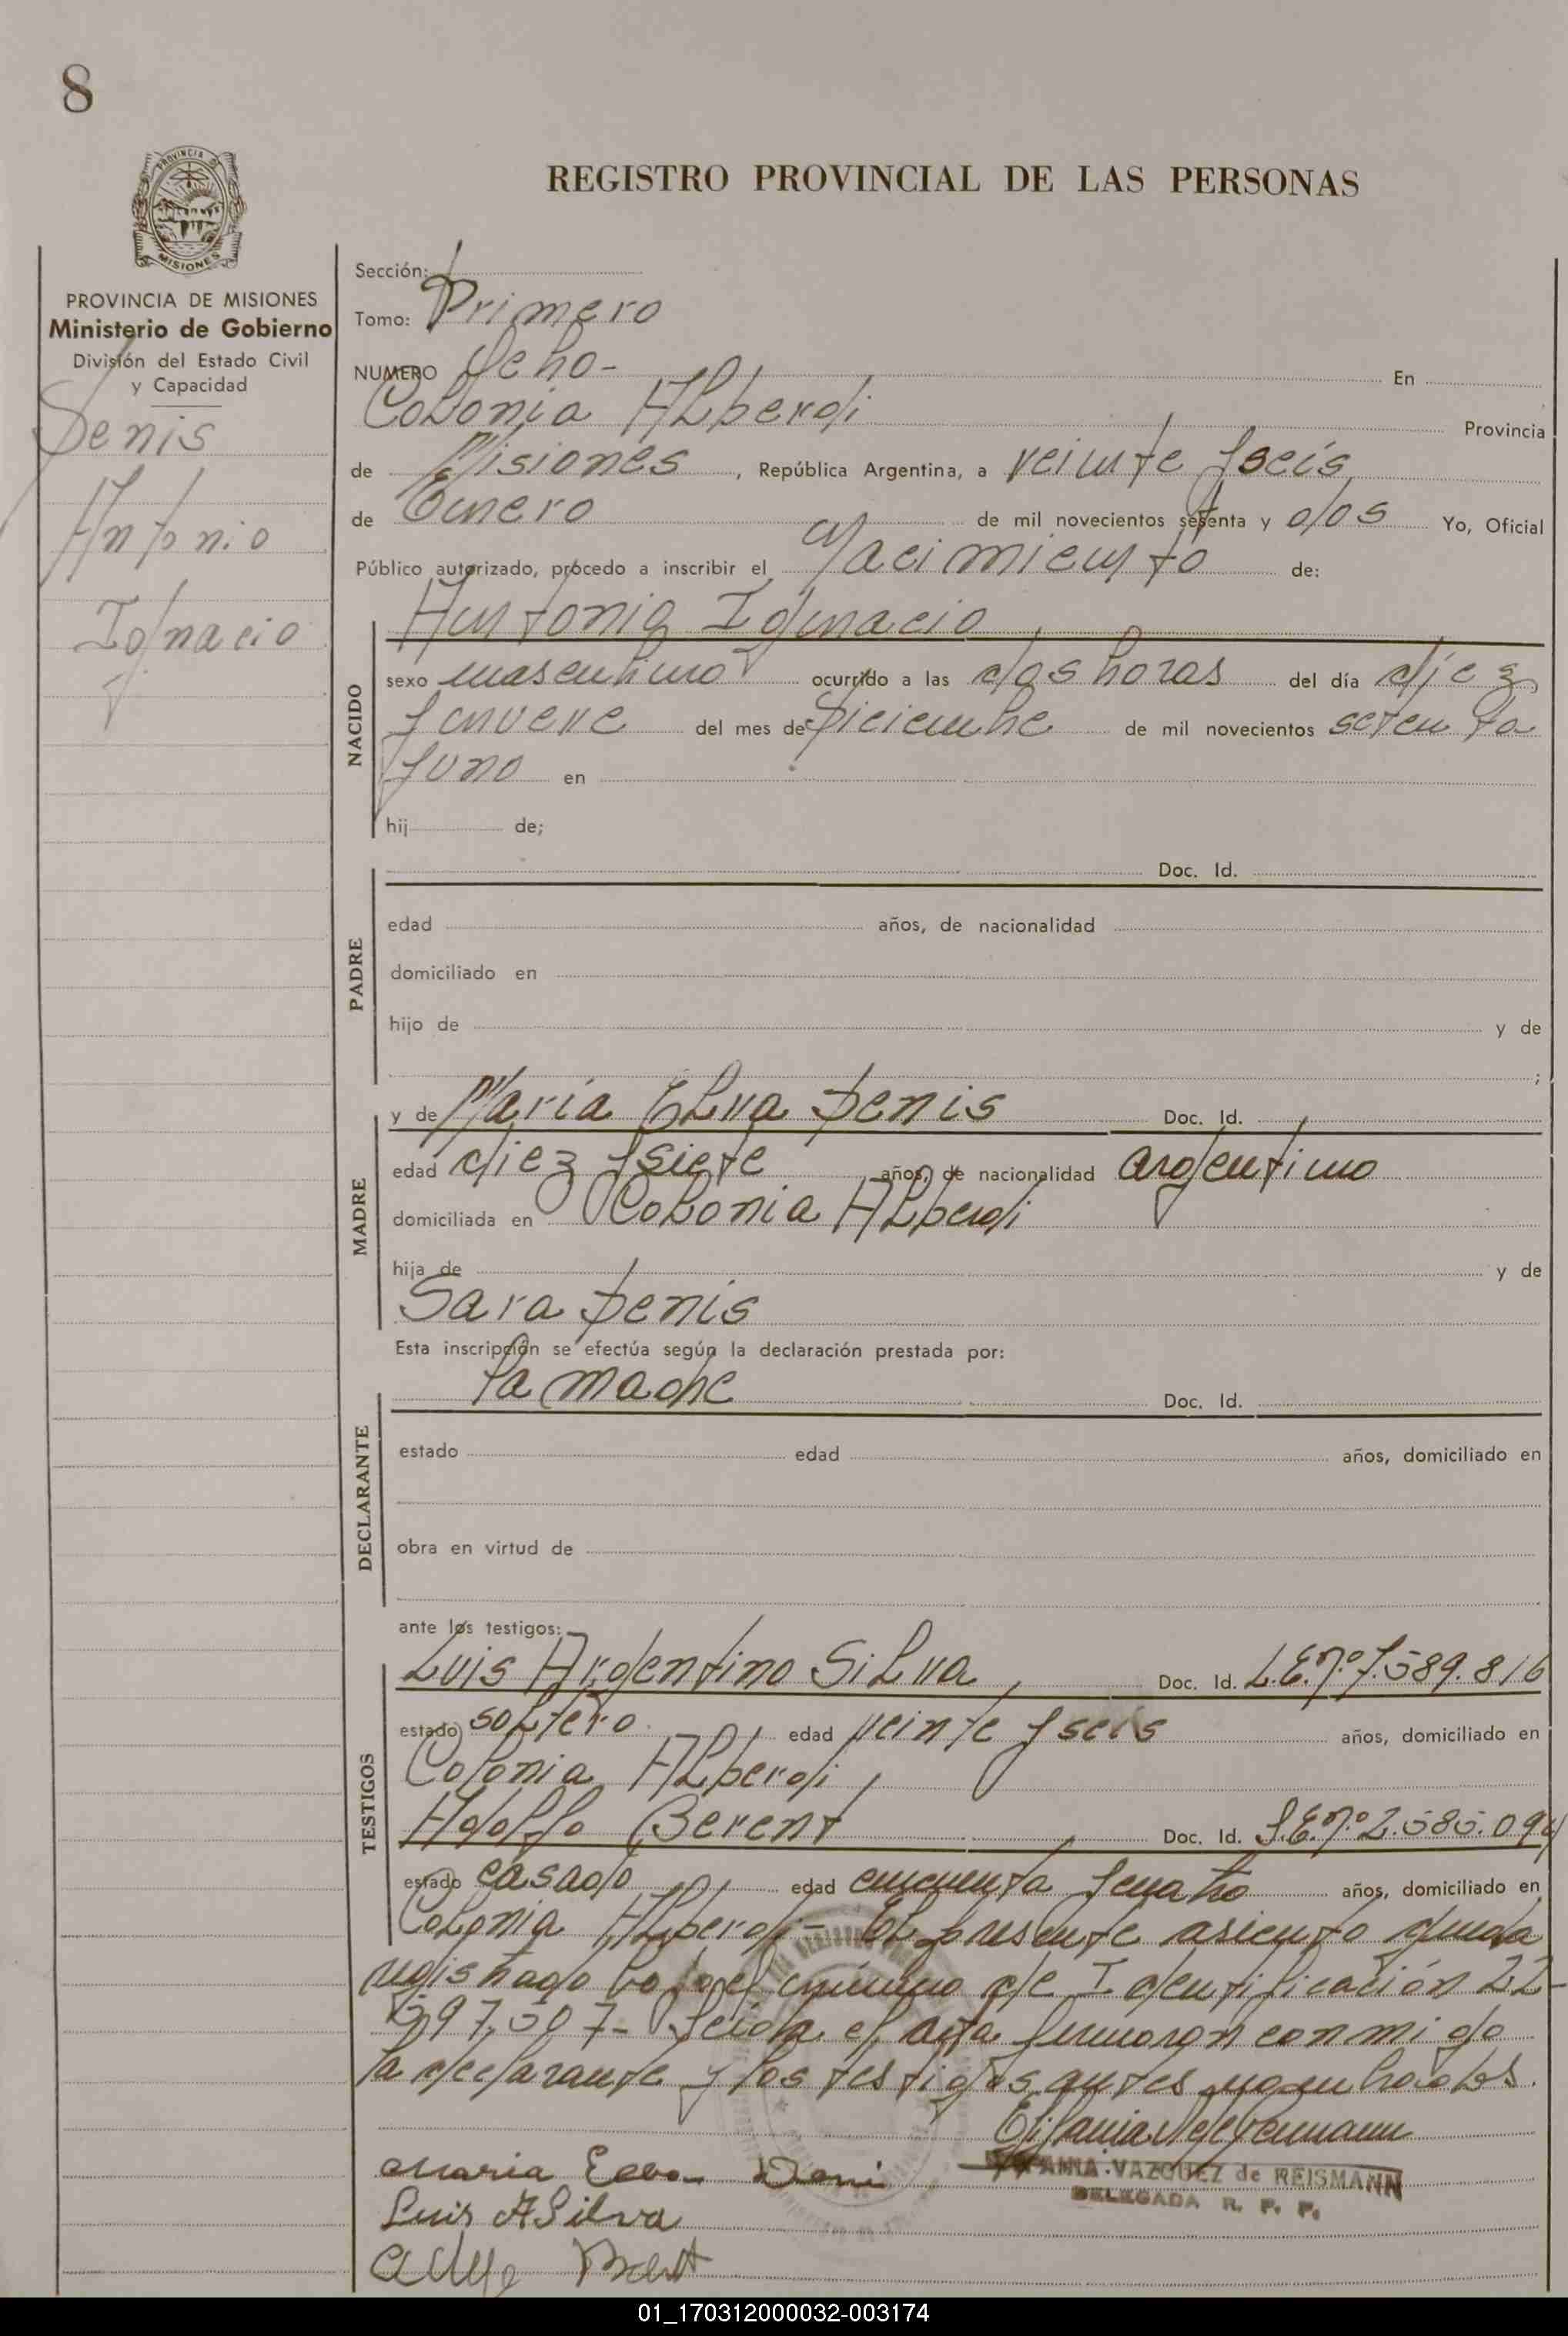 8
PROVINCIA DE
MISIONES
REGISTRO PROVINCIAL DE LAS PERSONAS
PROVINCIA DE MISIONES
Ministerio de Gobierno
División del Estado Civil
y Capacidad
Denis
Antonio
Ignacio
Sección:
Tomo: Primero
NUMERO Ocho- En
Colonia Alberdi Provincia
de Misiones, República Argentina, a veinte y seis
de Enero de mil novecientos setenta y dos Yo, Oficial
Público autorizado, procedo a inscribir el Nacimiento de:
NACIDO
Antonio Ignacio
sexo masculino ocurrido a las dos horas del día diez
y nueve del mes de Diciembre de mil novecientos setenta
y uno en
hij de;
PADRE
Doc. Id.
edad años, de nacionalidad
domiciliado en
hijo de y de
;
MADRE
y de María Elva Denis Doc. Id.
edad diez y siete años, de nacionalidad argentino
domiciliada en Colonia Alberdi
hija de y de
Sara Denis
Esta inscripción se efectúa según la declaración prestada por:
DECLARANTE
la madre Doc. Id.
estado edad años, domiciliado en
obra en virtud de
ante los testigos:
TESTIGOS
Luis Argentino Silva, Doc. Id. L.E.nº7.589.816
estado soltero edad veinte y seis años, domiciliado en
Colonia Alberdi,
Adolfo Berent Doc. Id. L.E.nº2.585.094
estado casado edad cincuenta y cuatro años, domiciliado en
Colonia Alberdi- El presente asiento queda
registrado bajo el número de Identificación 22-
397,507- Leída el acta firmaron conmigo
la declarante y los testigos antes nombrados.
Maria Elva
VAZQUEZ de REISMANN
DELEGADA R. P. P.
Luis A Silva
01_170312000032-003174